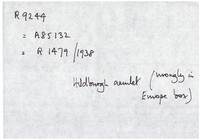 R 9244
= A85132
= R 1479 / 1938
Hildburgh amulet (wrongly in
Europe box)